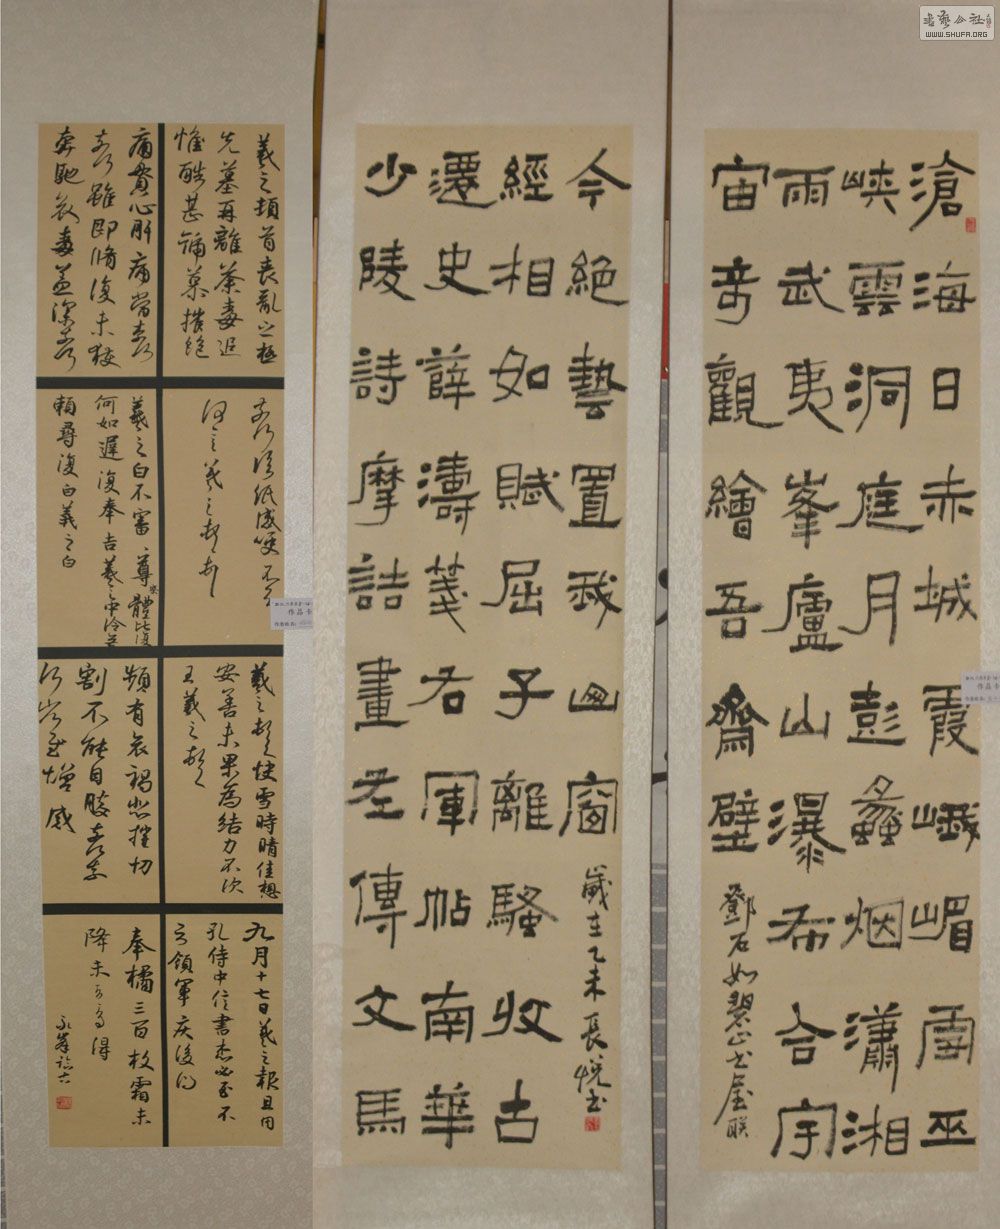 書藝公社
WWW.SHUFA.ORG
滄海日赤城霞峨嵋雪巫
峽雲洞庭月彭蠡烟瀟湘
雨武夷峯廬山瀑布合宇
宙奇觀繪吾齋壁
鄧石如碧山書屋聯
少陵詩摩詰畫左傳文馬
遷史薛濤箋右軍帖南華
經相如賦屈子離騷收古
今絕藝置我山窗
歲在乙未長悅書
羲之頓首喪亂之極
先墓再離荼毒追
惟酷甚號慕摧絕
痛貫心肝痛當奈何
奈何雖即脩復未獲
奔馳哀毒益深奈何
奈何臨紙感哽不知
何言羲之頓首
羲之白不審尊體比復
何如遲復奉告羲之中冷無
賴尋復白羲之白
羲之頓首快雪時晴佳想
安善未果為結力不次
王羲之頓首
頻有哀禍悲摧切
割不能自勝奈何
奈何省慰增感
九月十七日羲之報且因
孔侍中信書想必至不
知領軍疾後問
奉橘三百枚霜未
降未可多得
作品卡
作品卡